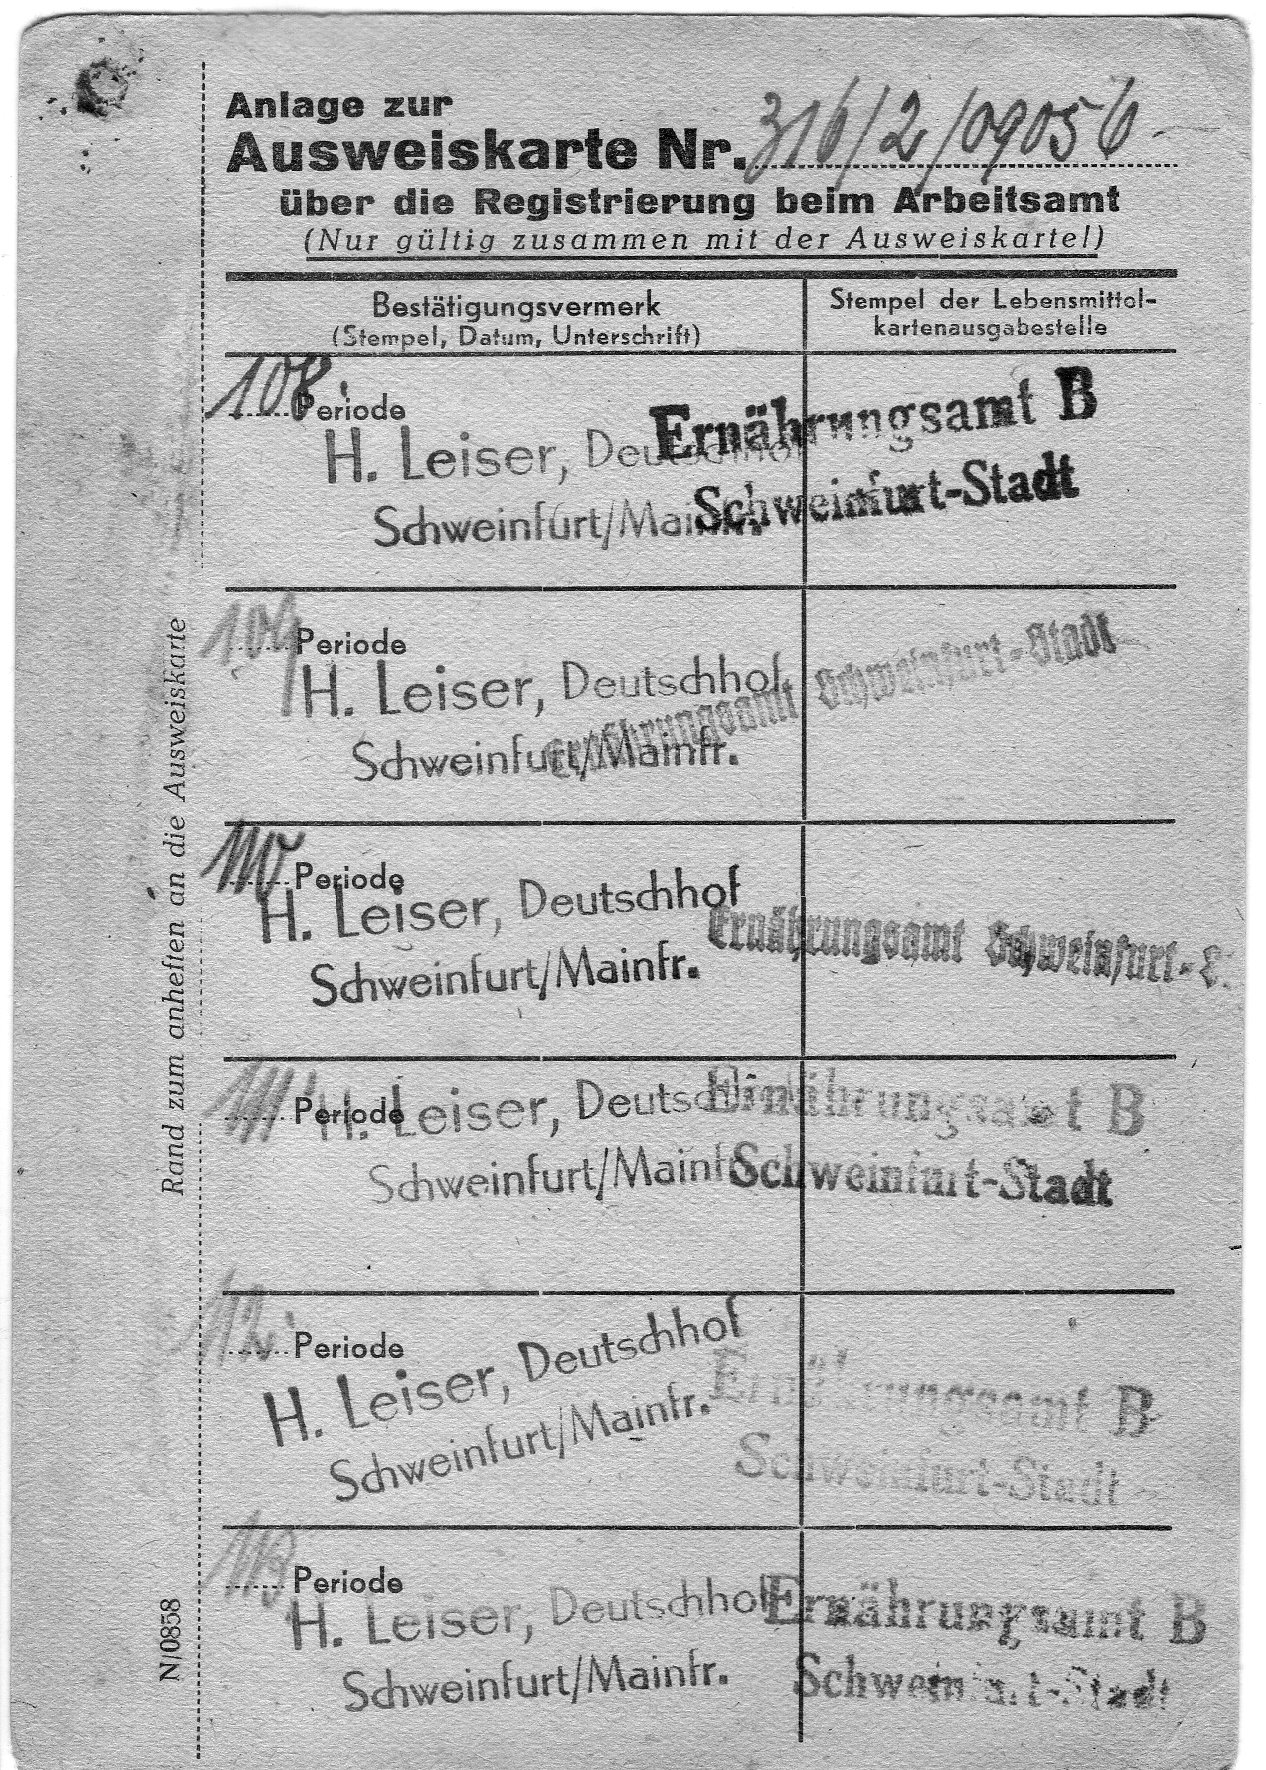 Anlage zur
Ausweiskarte Nr. 316/2/09056
über die Registrierung beim Arbeitsamt
(Nur gültig zusammen mit der Ausweiskarte!)
Bestätigungsvermerk
(Stempel, Datum, Unterschrift)
Stempel der Lebensmittel-
kartenausgabestelle
108. Periode
H. Leiser, Deutschhof
Schweinfurt/Mainfr.
Ernährungsamt B
Schweinfurt-Stadt
109 Periode
H. Leiser, Deutschhof
Schweinfurt/Mainfr.
Ernährungsamt Schweinfurt-Stadt
110 Periode
H. Leiser, Deutschhof
Schweinfurt/Mainfr.
Ernährungsamt Schweinfurt-
111 Periode
H. Leiser, Deutschhof
Schweinfurt/Mainfr.
Ernährungsamt B
Schweinfurt-Stadt
112. Periode
H. Leiser, Deutschhof
Schweinfurt/Mainfr.
Ernährungsamt B
Schweinfurt-Stadt
113 Periode
H. Leiser, Deutschhof
Schweinfurt/Mainfr.
Ernährungsamt B
Schweinfurt-Stadt
Rand zum anheften an die Ausweiskarte
N/0858